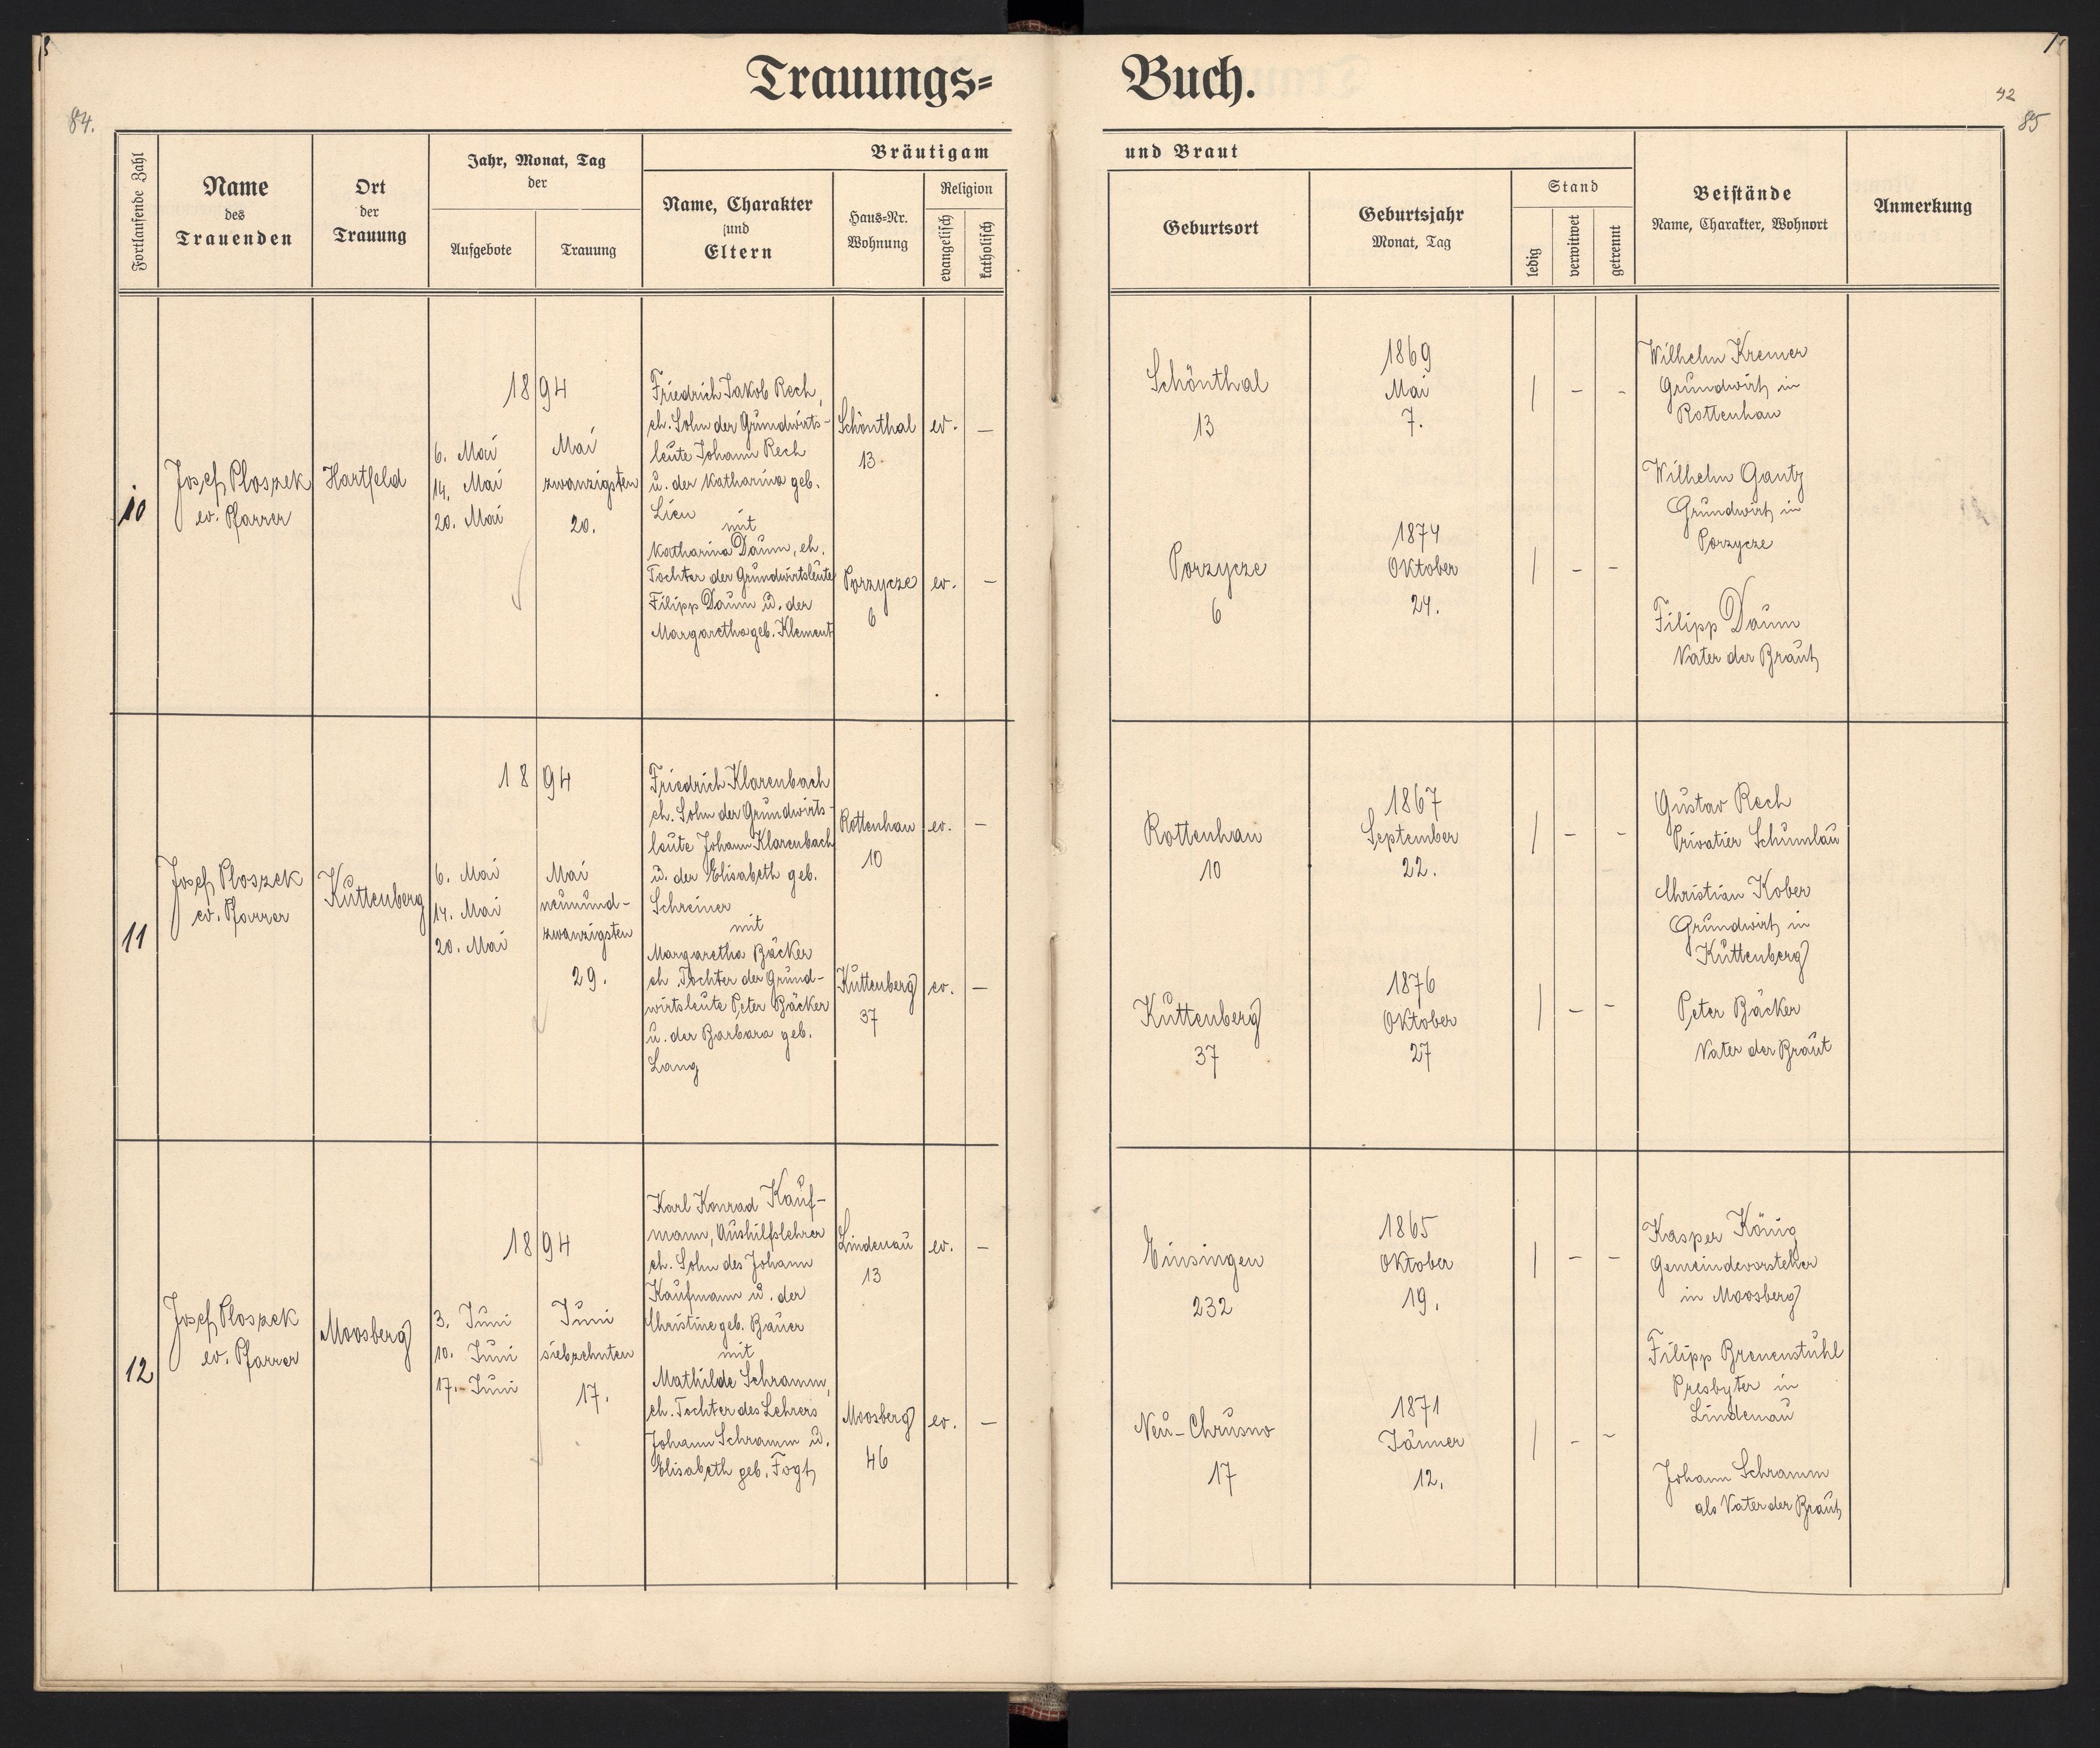 Trauungs=
Buch.
84.
42
85
Fortlaufende Zahl
Name
des
Trauenden
Ort
der
Trauung
Jahr, Monat, Tag
der
Aufgebote
Trauung
Bräutigam
Name, Charakter
und
Eltern
Haus=Nr.
Wohnung
Religion
evangelisch
katholisch
und Braut
Geburtsort
Geburtsjahr
Monat, Tag
Stand
ledig
verwitwet
getrennt
Beistände
Name, Charakter, Wohnort
Anmerkung
10
Josef Ploszek
ev. Pfarrer
Hartfeld
1894
6. Mai
14. Mai
20. Mai
Mai
zwanzigsten
20.
Friedrich Jakob Rech,
eh. Sohn der Grundwirts-
leute Johann Rech
u. der Katharina geb.
Lien
mit
Katharina Daum, eh.
Tochter der Grundwirtsleute
Filipp Daum u. der
Margaretha geb. Klement
Schönthal
13.
ev. –
Porzycze
6
ev. –
Schönthal
13
1869
Mai
7.
| – -
Porzycze
6
1874
Oktober
24.
| – –
Wilhelm Kremer
Grundwirt in
Rottenhan
Wilhelm Gantz
Grundwirt in
Porzycze
Filipp Daum
Vater der Braut
11
Josef Ploszek
ev. Pfarrer
Kuttenberg
1894
6. Mai
14. Mai
20. Mai
Mai
neunund-
zwanzigsten
29.
Friedrich Klarenbach
eh. Sohn der Grundwirts-
leute Johann Klarenbach
u. der Elisabeth geb.
Schreiner
mit
Margaretha Bäcker
eh Tochter der Grund-
wirtsleute Peter Bäcker
u. der Barbara geb.
Lang
Rottenhan
10
ev. –
Kuttenberg
37
ev. –
Rottenhan
10
1867
September
22.
| – -
Kuttenberg
37
1876
Oktober
27
| – –
Gustav Rech
Privatier Schumlau
Christian Kober
Grundwirt in
Kuttenberg
Peter Bäcker
Vater der Braut
12
Josef Ploszek
ev. Pfarrer
Moosberg
1894
3. Juni
10. Juni
17. Juni
Juni
siebzehnten
17.
Karl Konrad Kauf-
mann, Aushilfslehrer
eh. Sohn des Johann
Kaufmann u. der
Christine geb. Bauer
mit
Mathilde Schramm,
eh. Tochter des Lehrers
Johann Schramm u.
Elisabeth geb. Fogt
Lindenau
13
ev. –
Moosberg
46
ev. –
Einsingen
232
1865
Oktober
19.
| – –
Neu-Chrusno
17
1871
Jänner
12.
| – –
Kasper König
Gemeindevorsteher
in Moosberg
Filipp Brenenstuhl
Presbyter in
Lindenau
Johann Schramm
als Vater der Braut